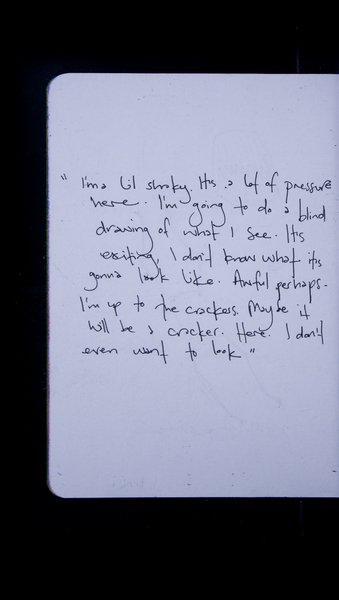 " I'm a lil shaky. It's a lot of pressure
here. I'm going to do a blind
drawing of what I see. It's
exciting, I don't know what it's
gonna look like. Awful perhaps.
I'm up to the crackers. Maybe it
will be a cracker. Here. I don't
even want to look "